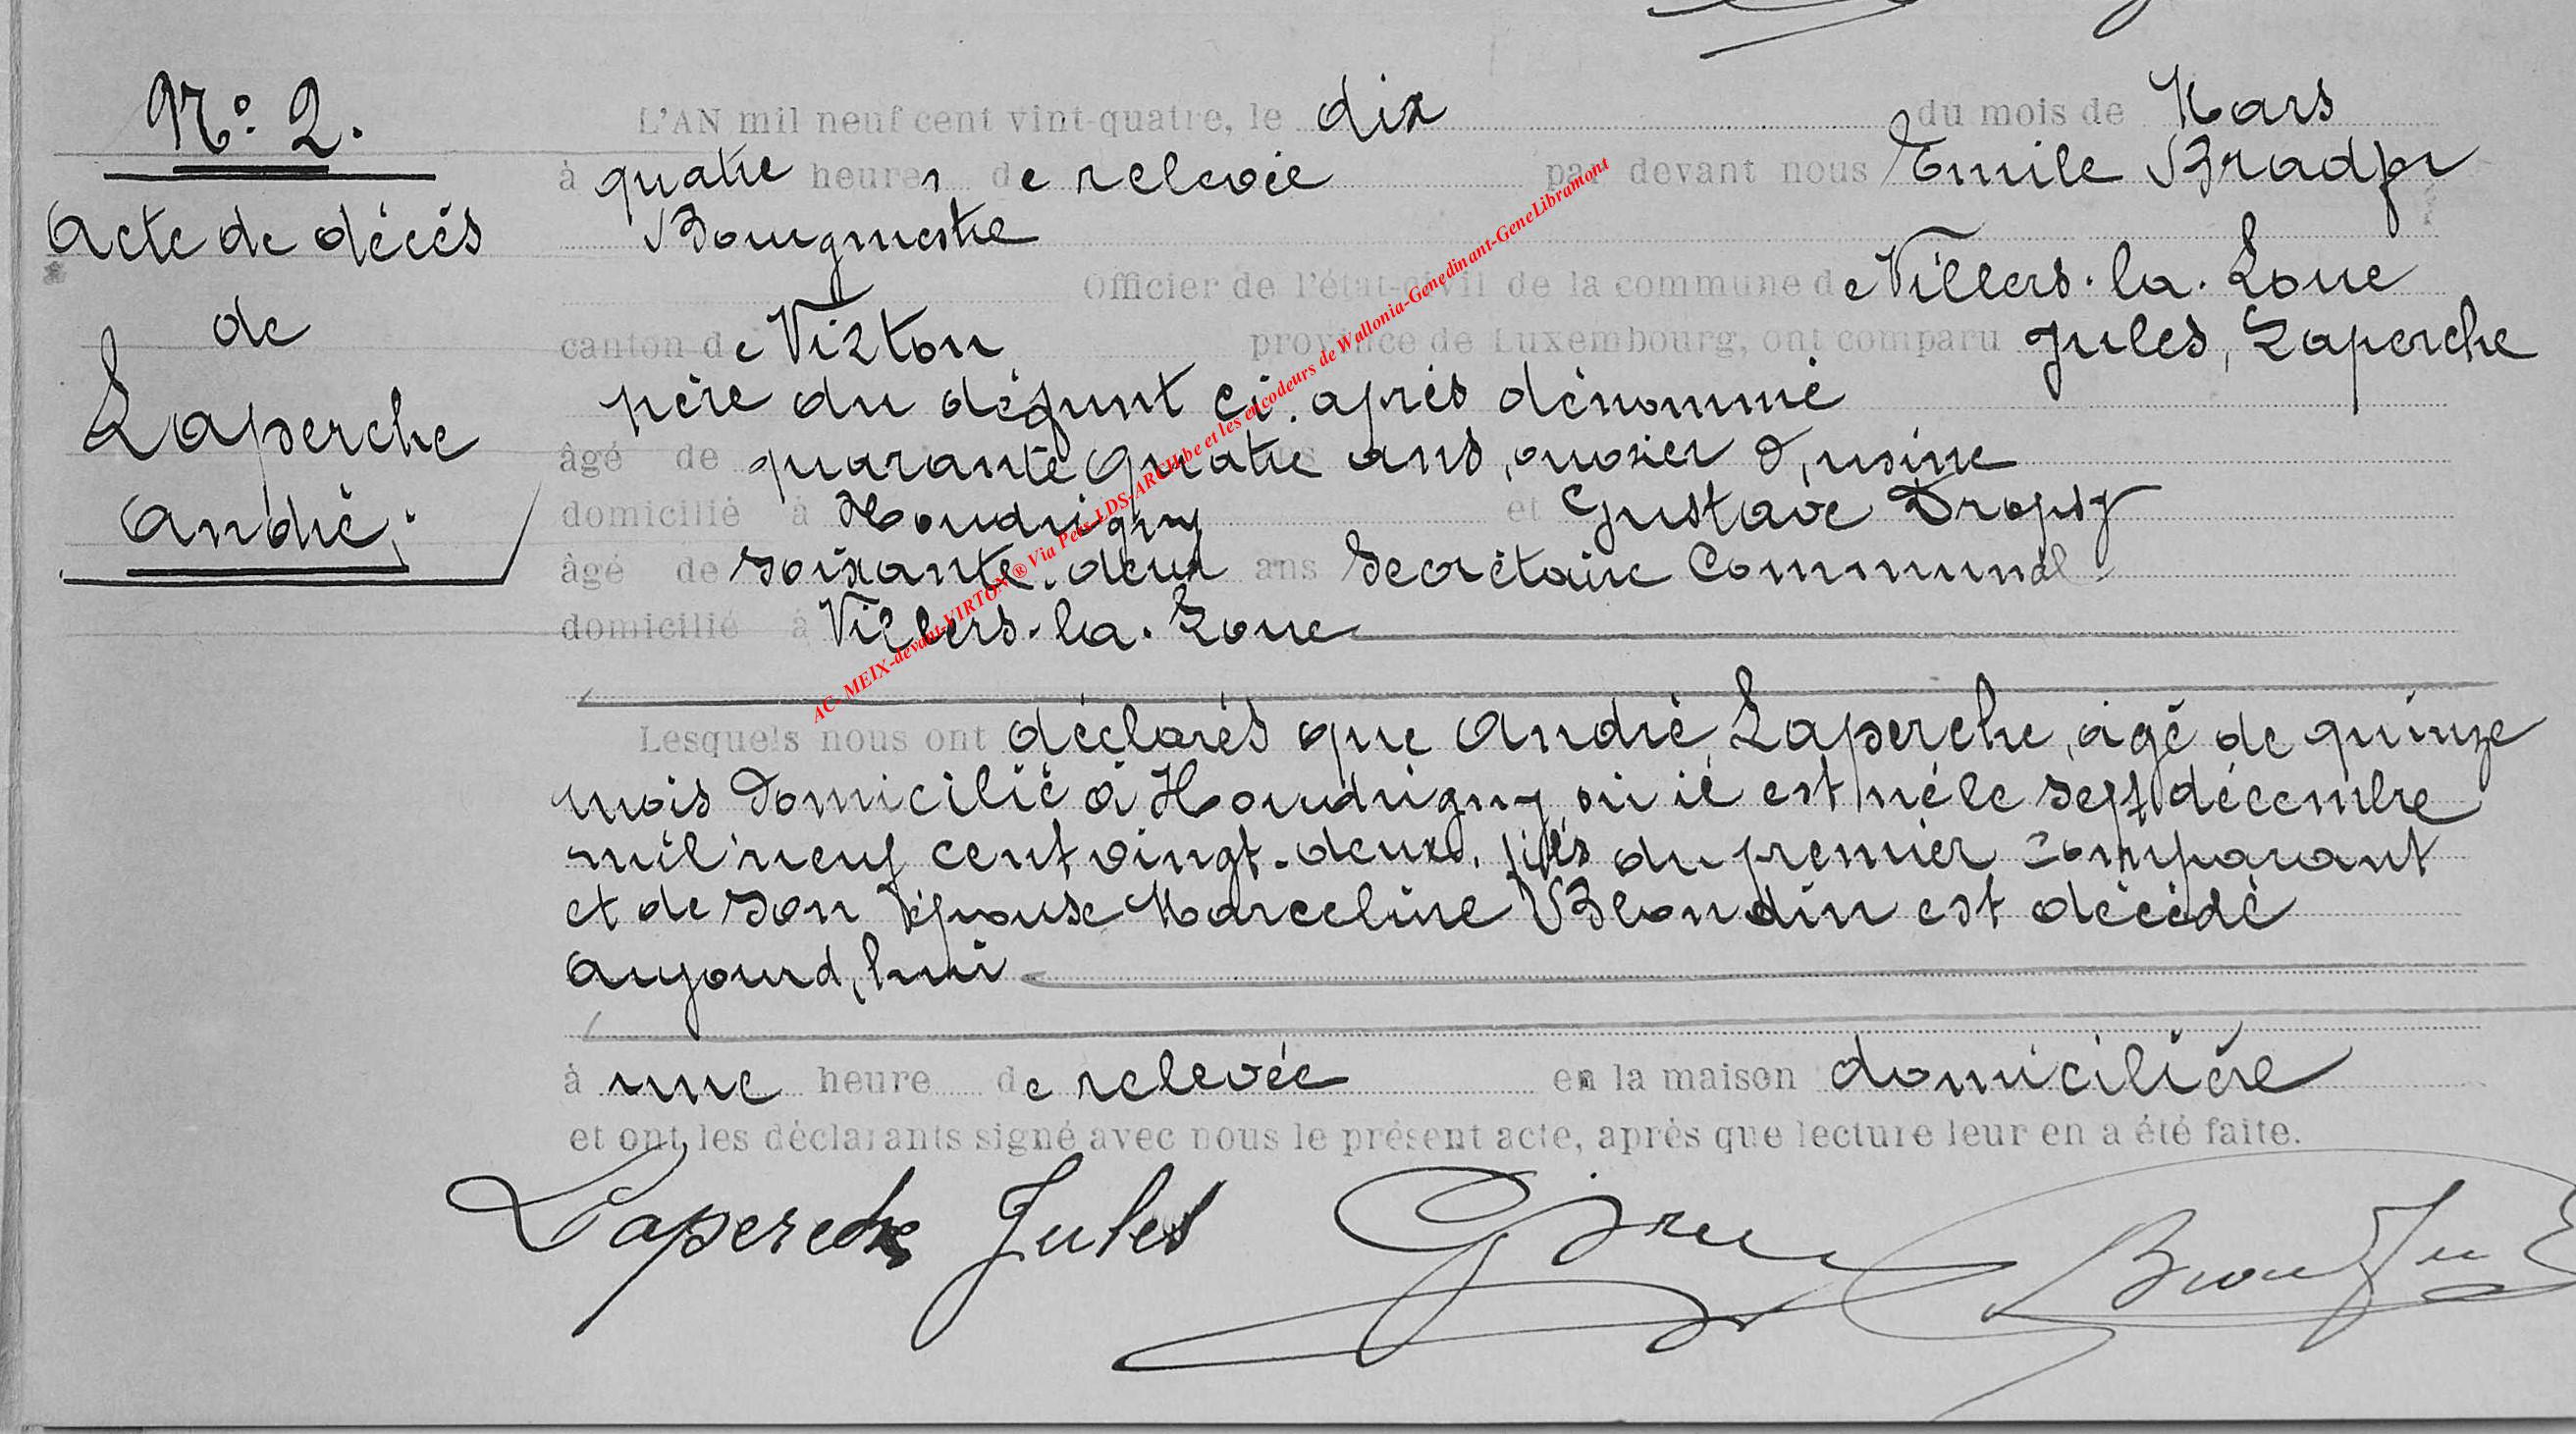 N.° 2.
Acte de décés
de
Laperche
André.
L'AN mil neuf cent vint-quatre, le dix du mois de Mars
à quatre heures de relevée par devant nous Emile
Bourgmestre
Officier de l'état-civil de la commune de Villers-la-Loue
canton de Virton province de Luxembourg, ont comparu Jules, Laperche
père du défunt ci-après dénommé
âgé de quarante quatre ans, ouvrier d'usine
domicilié à Houdrigny et Gustave Dropsy
âgé de soixante-deux ans Secrétaire Communal
domicilié à Villers-la-Loue
Lesquels nous ont déclarés que André Laperche, âgé de quinze
mois domicilié à Houdrigny où il est né le sept décembre
mil neuf cent vingt-deux, fils du premier comparant
et de son épouse Marceline Blondin est décédé
aujourd'hui
à une heure de relevée en la maison domicilière
et ont les déclarants signé avec nous le présent acte, après que lecture leur en a été faite.
Laperche Jules
AC-MEIX-devant-VIRTON ® Via Pers-LDS-ARCH.be et les encodeurs de Wallonia-Genedinant-GeneLibramont